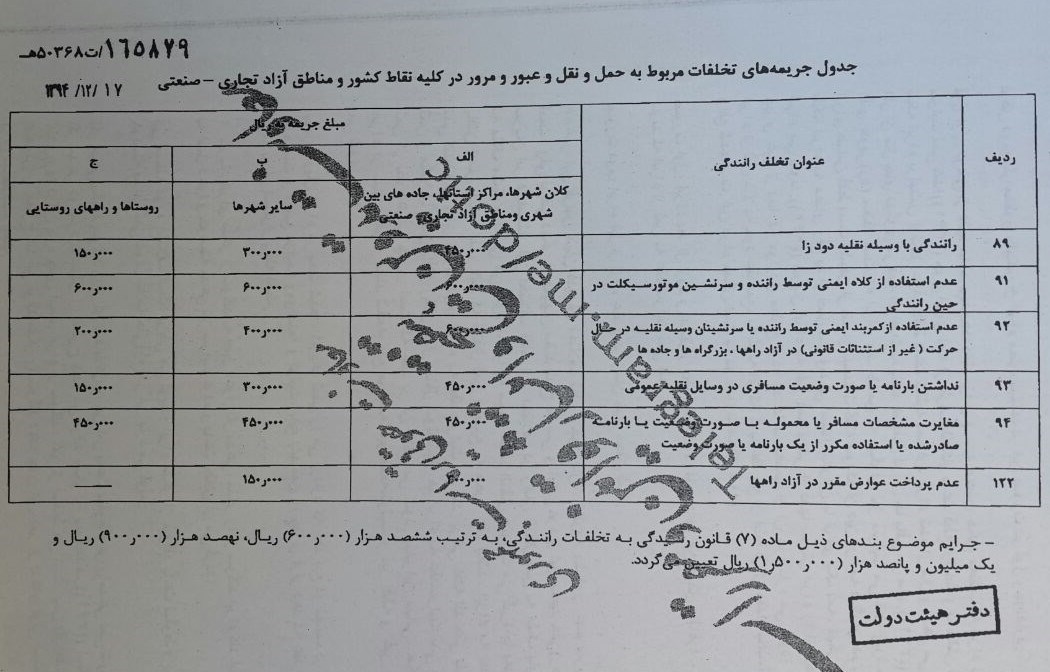 ۱۶۵۸۷۹/ت۵۰۳۶۸هـ
۱۳۹۴/۱۲/۱۷
جدول جریمه‌های تخلفات مربوط به حمل و نقل و عبور و مرور در کلیه نقاط کشور و مناطق آزاد تجاری – صنعتی
ردیف
عنوان تخلف رانندگی
مبلغ جریمه به ریال
الف
ب
ج
کلان شهرها، مراکز استانها، جاده های بین
شهری ومناطق آزاد تجاری - صنعتی
سایر شهرها
روستاها و راههای روستایی
۸۹ رانندگی با وسیله نقلیه دود زا ۴۵۰٫۰۰۰ ۳۰۰٫۰۰۰ ۱۵۰٫۰۰۰
۹۱ عدم استفاده از کلاه ایمنی توسط راننده و سرنشین موتورسیکلت در ۶۰۰٫۰۰۰ ۶۰۰٫۰۰۰ ۶۰۰٫۰۰۰
حین رانندگی
۹۲ عدم استفاده ازکمربند ایمنی توسط راننده یا سرنشینان وسیله نقلیه در حال ۴۰۰٫۰۰۰ ۲۰۰٫۰۰۰
حرکت ( غیر از استثنائات قانونی) در آزاد راهها ، بزرگراه ها و جاده ها
۹۳ نداشتن بارنامه یا صورت وضعیت مسافری در وسایل نقلیه عمومی ۴۵۰٫۰۰۰ ۳۰۰٫۰۰۰ ۱۵۰٫۰۰۰
۹۴ مغایرت مشخصات مسافر یا محموله با صورت وضعیت یا بارنامه ۴۵۰٫۰۰۰ ۴۵۰٫۰۰۰ ۴۵۰٫۰۰۰
صادرشده یا استفاده مکرر از یک بارنامه یا صورت وضعیت
۱۲۲ عدم پرداخت عوارض مقرر در آزاد راهها ۱۵۰٫۰۰۰ ——
– جرایم موضوع بندهای ذیل ماده (۷) قانون رسیدگی به تخلفات رانندگی، به ترتیب ششصد هزار (۶۰۰٫۰۰۰) ریال، نهصد هزار (۹۰۰٫۰۰۰) ریال و
یک میلیون و پانصد هزار (۱٫۵۰۰٫۰۰۰) ریال تعیین می گردد.
دفتر هیئت دولت